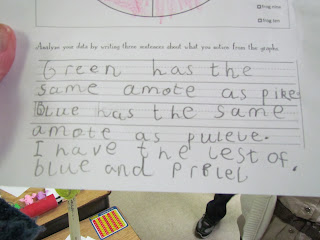 frog nine
frog ten
Analyse your data by writing three sentences about what you notice from the graphs
Green has the
same amote as pike.
Blue has the same
amote as puleve.
I have the lest of
blue and prplel.